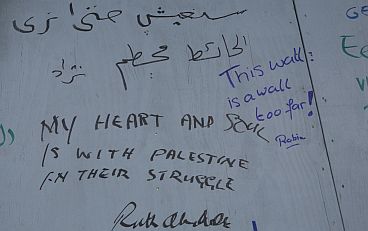 سنعيش حتى نرى
الحائط محطم
MY HEART AND SOUL
IS WITH PALESTINE
IN THEIR STRUGGLE
This wall:
is a wall
too far!
Robin